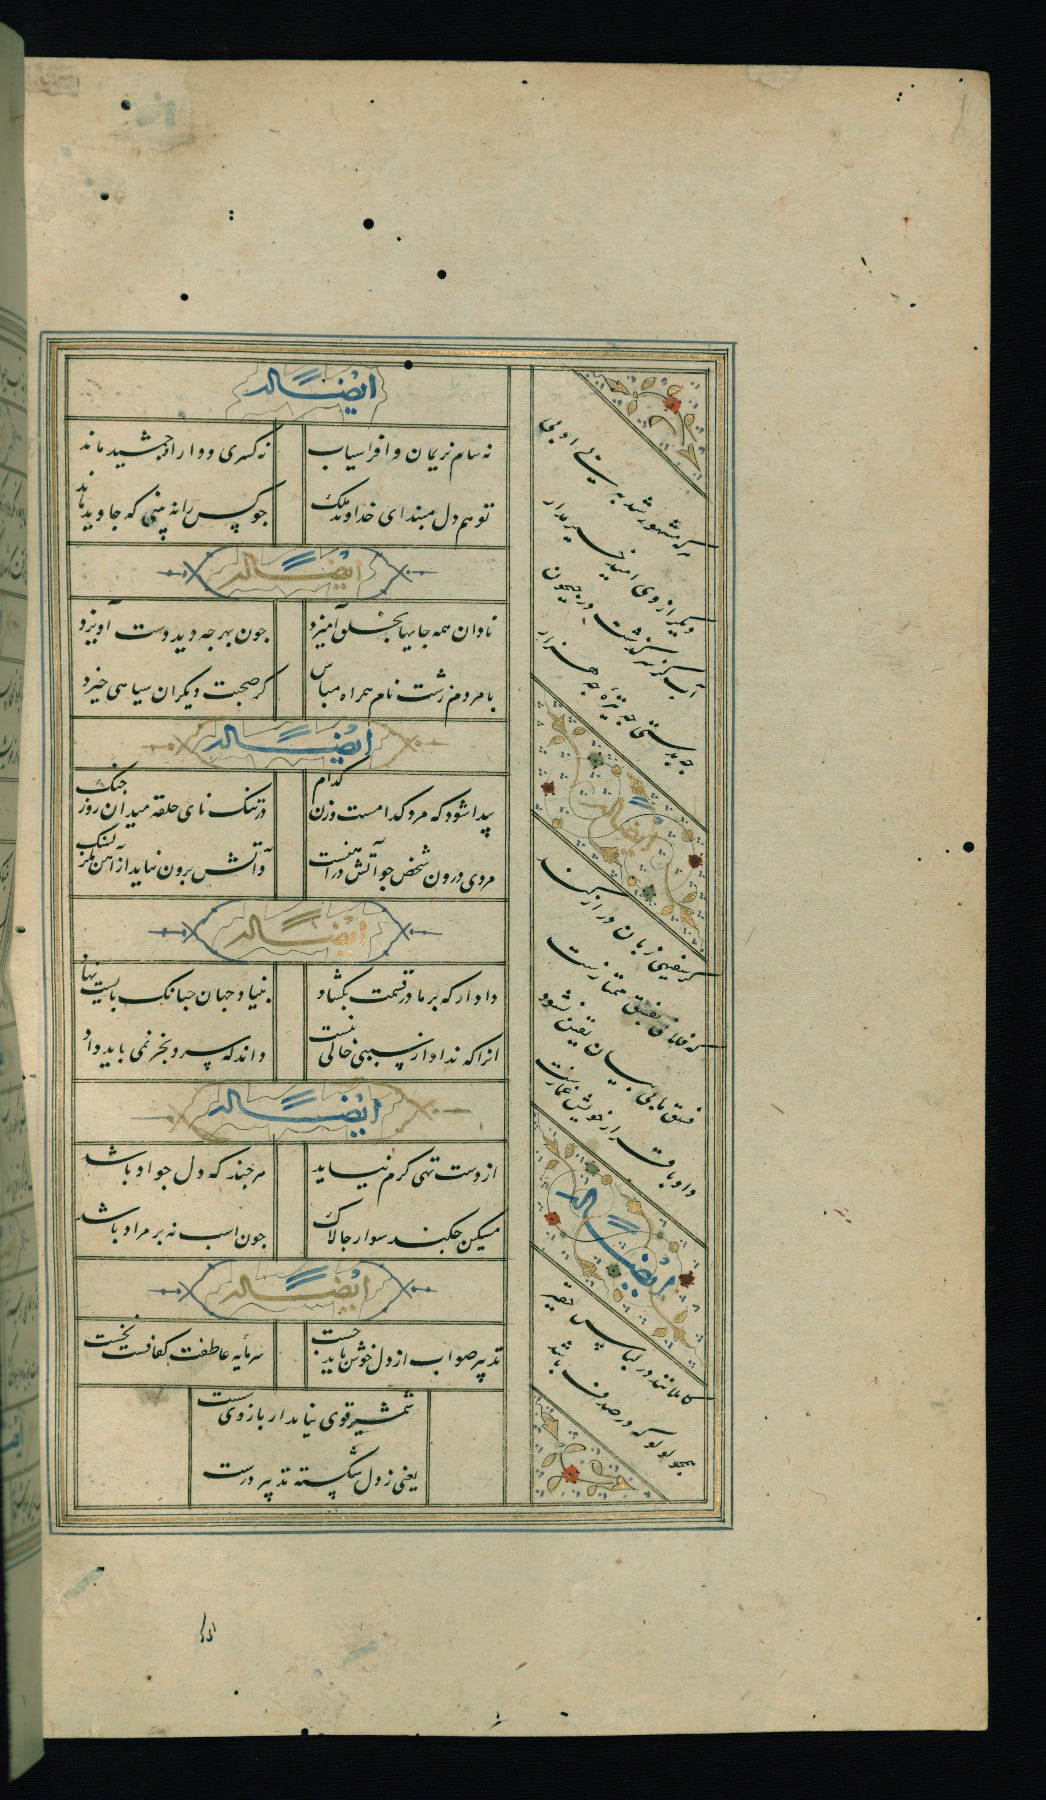 ایضاً له
نه سام نریمان و افراسیاب نه کسری و دارا و جمشید ماند
تو هم دل مبند ای خداوند ملک جو کس را نه بینی که جاوید ماند
ایضاً له
نادان همه جا بهایخلق آمیزد جون بهر جه دید دست آویزد
با مردم زشت نام همراه مباش کز صحبت دیکران سیاهی خیزد
ایضاً له
پیدا شود که مرد کدامست و زن کدام در تنک نای حلقه میدان روز جنک
مردی درون شخص جو آتش در آهنست و آتش برون نیاید از آهن بلز
ایضاً له
دادار که بر ما در قسمت بکشاد بنیاد جهان جنانک بایست نهاد
انرا که نداد از سببی خالی نیست داند که سرو بخر نمی باید داد
ایضاً له
از دست تهی کرم نیاید هر جند که دل جواد باشد
مسکین جکند سوار جالاک جون اسب نه بر مراد باشد
ایضاً له
تدبیر صواب از دل خوش باید جست سرمایه عاطفت کفافست نخست
شمشیر قوی نیاید از بازوی سست
یعنی ز دل شکسته تدبیر درست
هر که مشهور شد به بی ادبی
دیکر از وی امید خیر مدار
آب کز سر کذشت در جیحون
جه بدستی جه نیزه جه هزار
ایضاً له
کر سفیهی زبان دراز کند
که فلانی بفسق ممتازست
فسق ما بی بیان یقین نشود
و او باقرار خویش غمازست
ایضاً له
کاملانند در لباس حقیر
همجو لولو که در صدف باشد